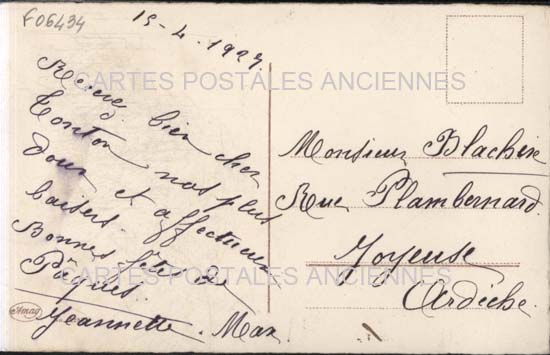 F06434
15-4-1927
CARTES POSTALES ANCIENNES
Recevez bien cher
Tonton nos plus
doux et affectueux
baisers.
Bonnes fêtes de
Pâques.
Jeannette. Max.
Monsieur Blachère
Rue Plambernard.
Joyeuse
Ardèche.
CARTES POSTALES ANCIENNES
Amag